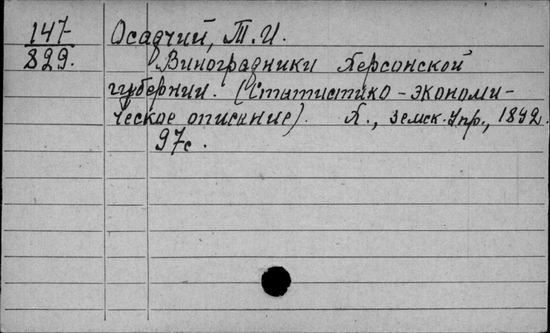 147
829.
Осадчий, Т.И.
Виноградники Херсонской
губернии. (Статистико-экономи-
ческое описание). Х., земск. упр., 1892.
97с.